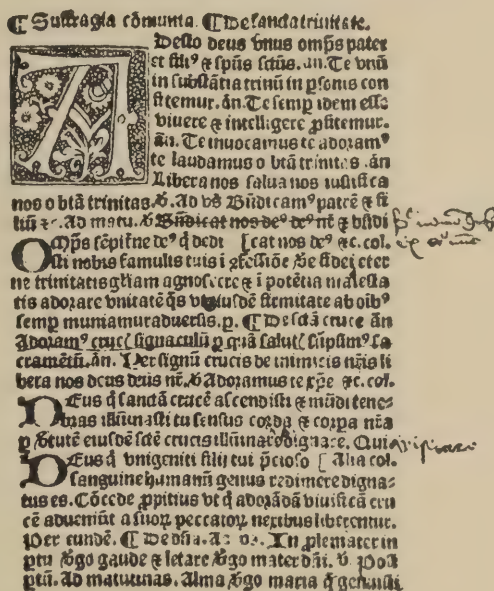 ¶ Suffragia cōmunia. ¶ De sancta trinitate.
Adesto deus vnus omp̄s pater
et fili⁹ ⁊ sp̄us sctūs. an. Te vnū
in substātia trinū in ꝑsonis con
fitemur. ān. Te semꝑ idem esse
viuere ⁊ intelligere ꝓfitemur.
ān. Te inuocamus te adoram⁹
te laudamus o btā trinitas. ān
Libera nos salua nos iustifica
nos o btā trinitas. ℣. Ad vs̄ Bn̄dicam⁹ patrē ⁊ fi
liū ⁊c. Ad matu. ℣ Bn̄dicat nos de⁹ de⁹ nt̄ ⁊ bn̄di
Omp̄s sēpitne de⁹ q̄ dedi [cat nos de⁹ ⁊c. col.
sti nobis famulis tuis i ꝯfessiōe ꝟe fidei eter
ne trinitatis gliam agnoscere ⁊ i potētia maiesta
tis adorare vnitatē q̄s vt eiusdē firmitate ab oīb⁹
semꝑ muniamur aduersis. p. ¶ De sctā cruce ān
Adoram⁹ cruc signaculū ꝑ quā salut sūpsim⁹ sa
cramētū. ān. Per signū crucis de inimicis nr̄is li
bera nos deus deus nr̄. ℣ Adoramus te xp̄e ⁊c. col.
Deus q̄ sanctā crucē ascendisti ⁊ mūdi tene
bras illūinasti tu sensus corda ⁊ corpa nr̄a
ꝑ ꝟtutē eiusdē sctē crucis illūinare dignare. Qui
Deus q̄ vnigeniti filij tui p̄cioso [Alia col.
sanguine humanū genus redimere digna
tus es. Cōcede ꝓpitius vt q̄ adorādā viuificā cru
cē adueniūt a suoꝝ peccatoꝝ nexibus liberentur.
Per eundē. ¶ De dn̄a. Ad vs̄. In ꝓle mater in
ptu ꝟgo gaude ⁊ letare ꝟgo mater dn̄i. ℣. Post
ptū. Ad matutinas. Alma ꝟgo maria q̄ genuisti